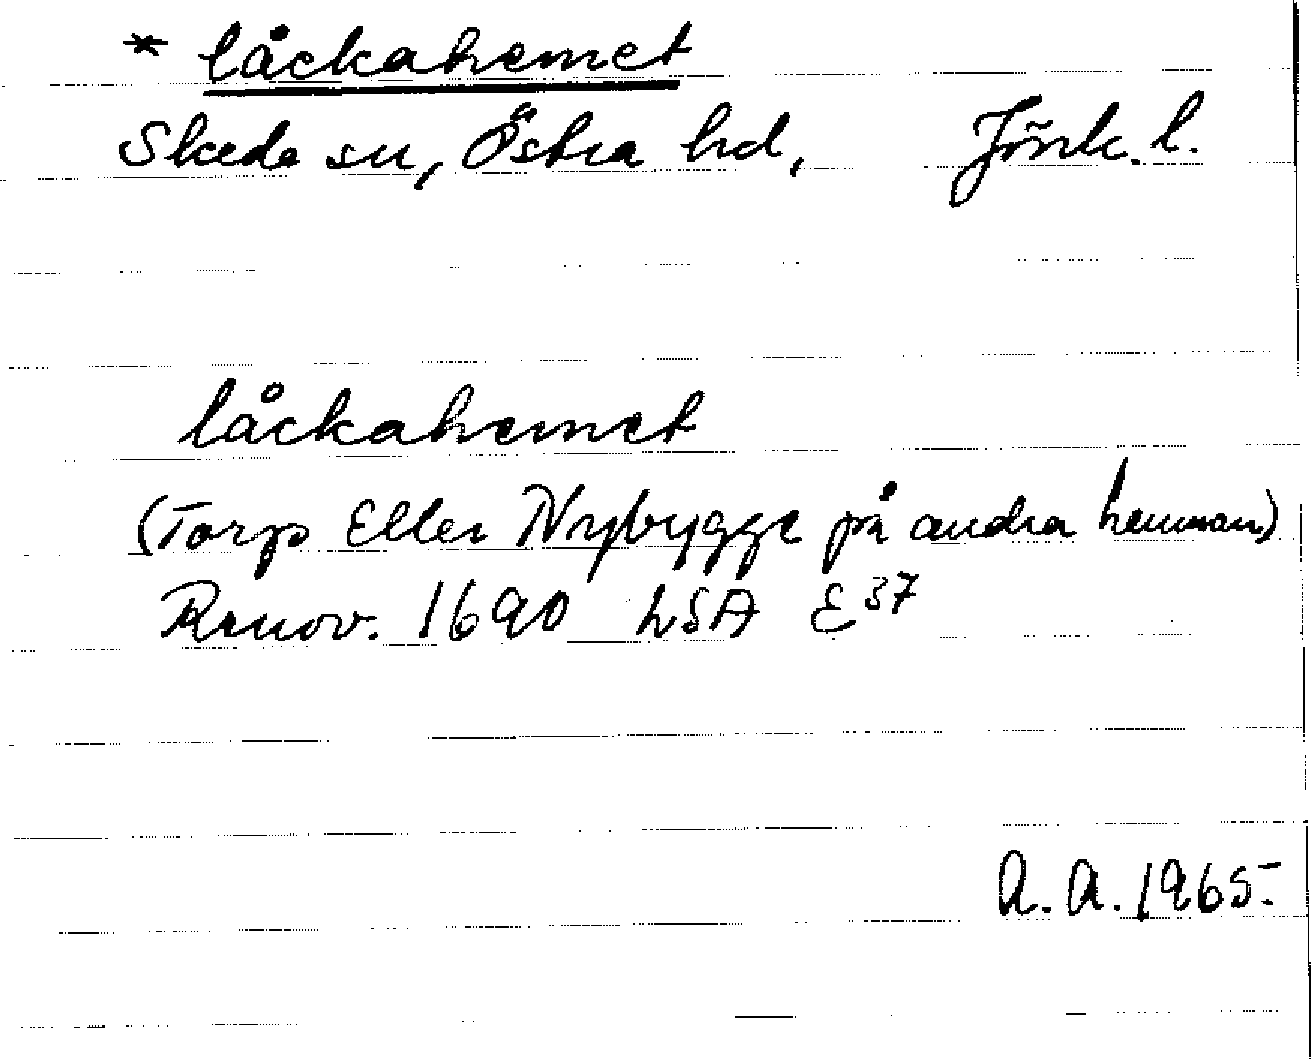 * låckahemet
Skede sn, Östra hd, Jönk. l.
låckahemet
(Torp Eller Nybygge på andra hemman)
Renov. 1690 LSA E37
A. A. 1965.